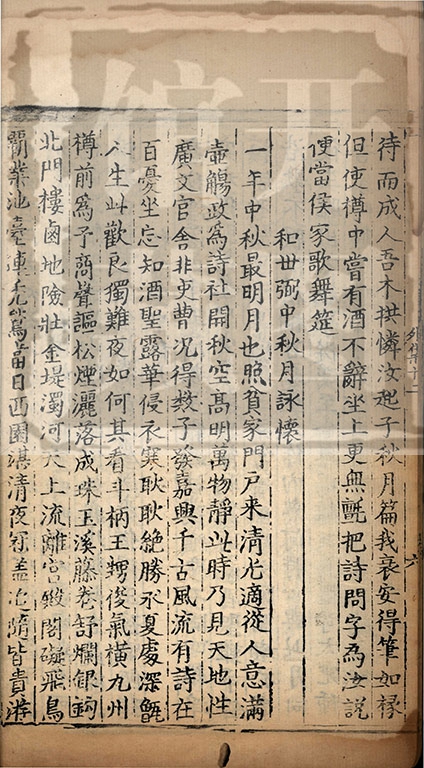 待而成人吾木拱憐汝起予秋月篇我衰安得筆如椽
但使樽中嘗有酒不辭坐上更無氈把詩問字為汝説
便當侯家歌舞筵
和丗弼中秋月詠懷
一年中秋最明月也照貧家門户来清光適從人意滿
壺觴政為詩社開秋空高明萬物靜此時乃見天地性
廣文官舍非吏曹况得數子發嘉興千古風流有詩在
百憂坐忘知酒聖露華侵衣寒耿耿絶勝永夏處深甑
人生此歡良獨難夜如何其看斗柄王甥俊氣橫九州
樽前為予商聲謳松煙灑落成珠玉溪藤卷舒爛銀鈎
北門樓鹵地險壯金堤濁河天上流離宫殿閣礙飛鳥
霸業池臺連秃鶖當日西園湛清夜冠盖追隨皆貴游
六